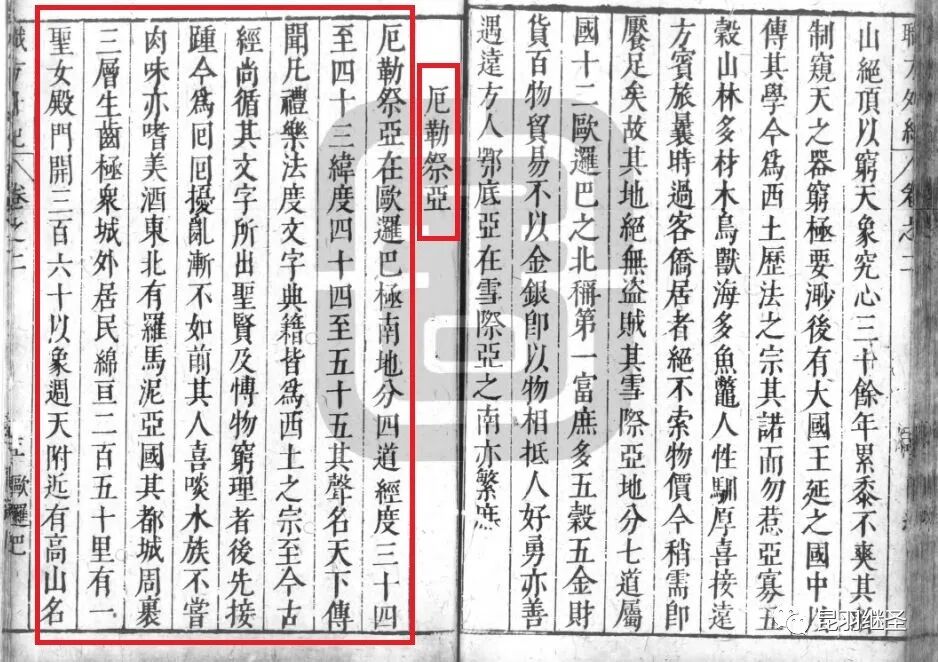 職方外紀 卷之二
山絕頂以窮天象究心三十餘年累黍不爽其
制窺天之器窮極要渺後有大國王延之國中以
傳其學今爲西土歷法之宗其諾而勿惹亞寡五
穀山林多材木鳥獸海多魚鼈人性馴厚喜接遠
方賓旅曩時過客僑居者絕不索物價今稍需卽
饜足矣故其地絕無盜賊其雪際亞地分七道屬
國十二歐邏巴之北稱第一富庶多五穀五金財
貨百物貿易不以金銀卽以物相抵人好勇亦善
遇遠方人鄂底亞在雪際亞之南亦繁庶
厄勒祭亞
厄勒祭亞在歐邏巴極南地分四道經度三十四
至四十三緯度四十四至五十五其聲名天下傳
聞凡禮樂法度文字典籍皆爲西土之宗至今古
經尚循其文字所出聖賢及博物窮理者後先接
踵今爲囘囘擾亂漸不如前其人喜啖水族不嘗
肉味亦嗜美酒東北有羅馬泥亞國其都城周裹
三層生齒極衆城外居民綿亘二百五十里有一
聖女殿門開三百六十以象週天附近有高山名
職方外紀 卷之二 歐邏巴
昆羽继圣